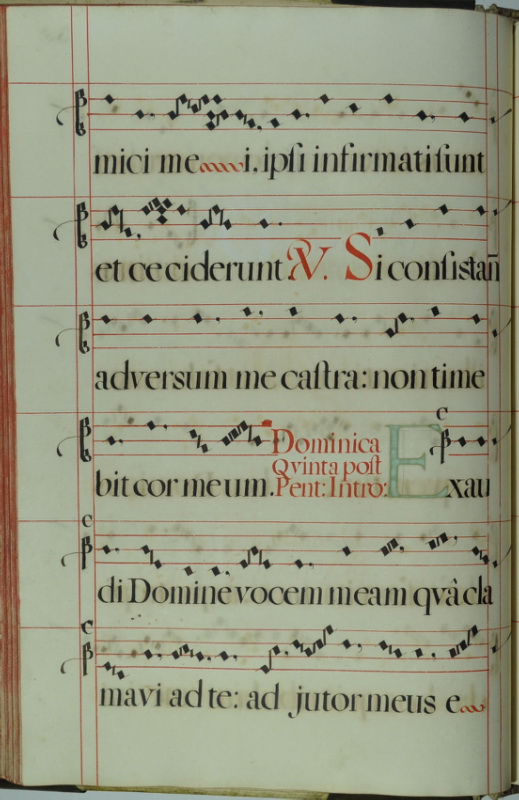 mici me i, ipſi infirmati ſunt
et ceciderunt. V. Si conſistañ
adversum me caſtra: non time
bit cor meum. Dominica Qvinta poſt Pent: Intro: Exau
di Domine vocem meam qvâ cla
mavi ad te: ad jutor meus e